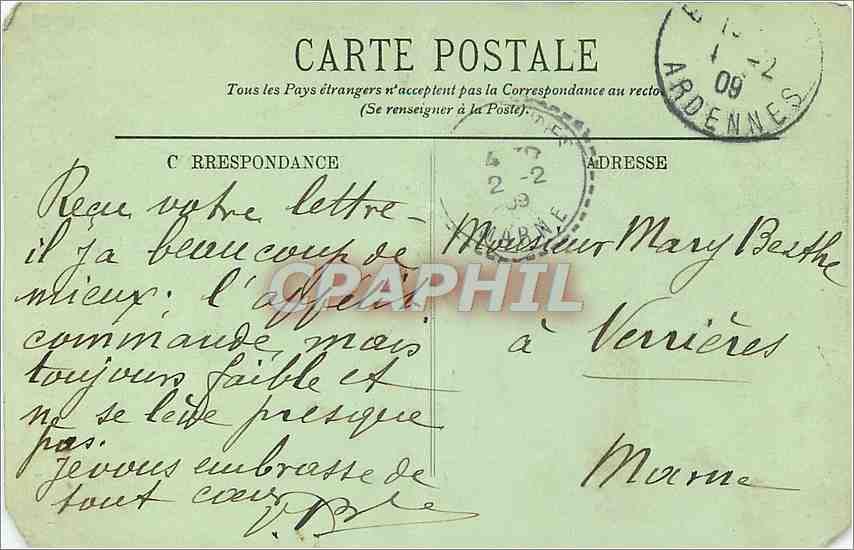 CARTE POSTALE
Tous les Pays étrangers n'acceptent pas la Correspondance au recto.
(Se renseigner à la Poste).
C RRESPONDANCE
ADRESSE
09
ARDENNES
2 -2
09
MARNE
Reçu votre lettre –
il y a beaucoup de
mieux; l'appétit
commande, mais
toujours faible et
ne se lève presque
pas.
Je vous embrasse de
tout cœur
Monsieur Mary Berthe
à Verrières
Marne
CPAPHIL